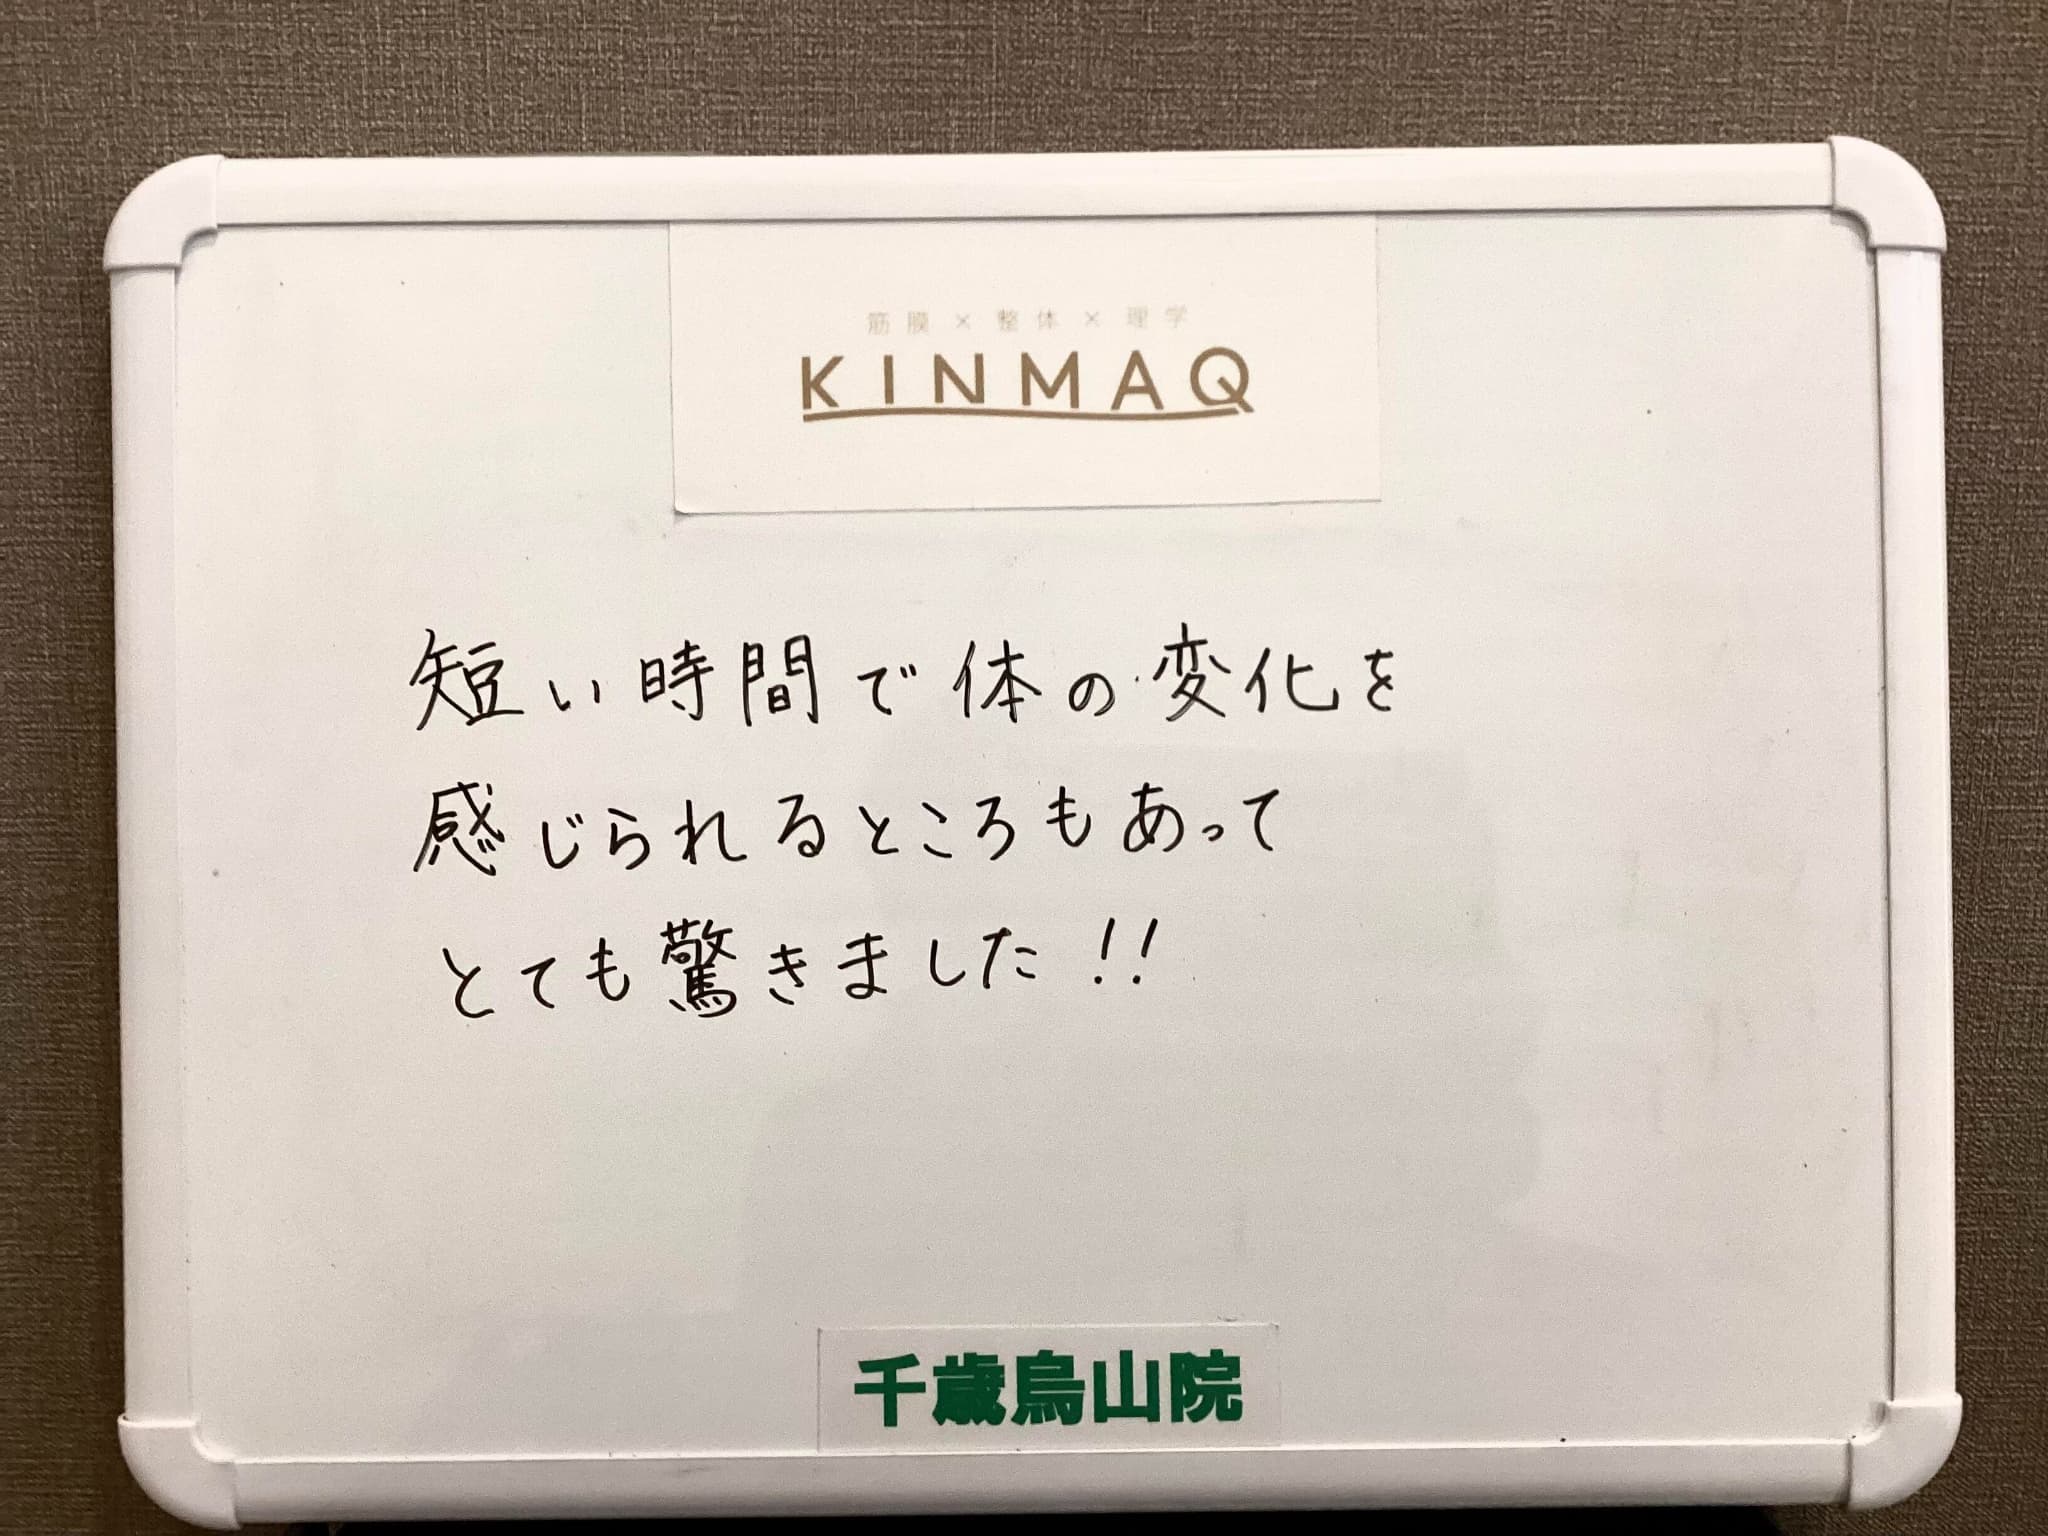 筋膜×整体×理学
KINMAQ
短い時間で体の変化を
感じられるところもあって
とても驚きました!!
千歳烏山院